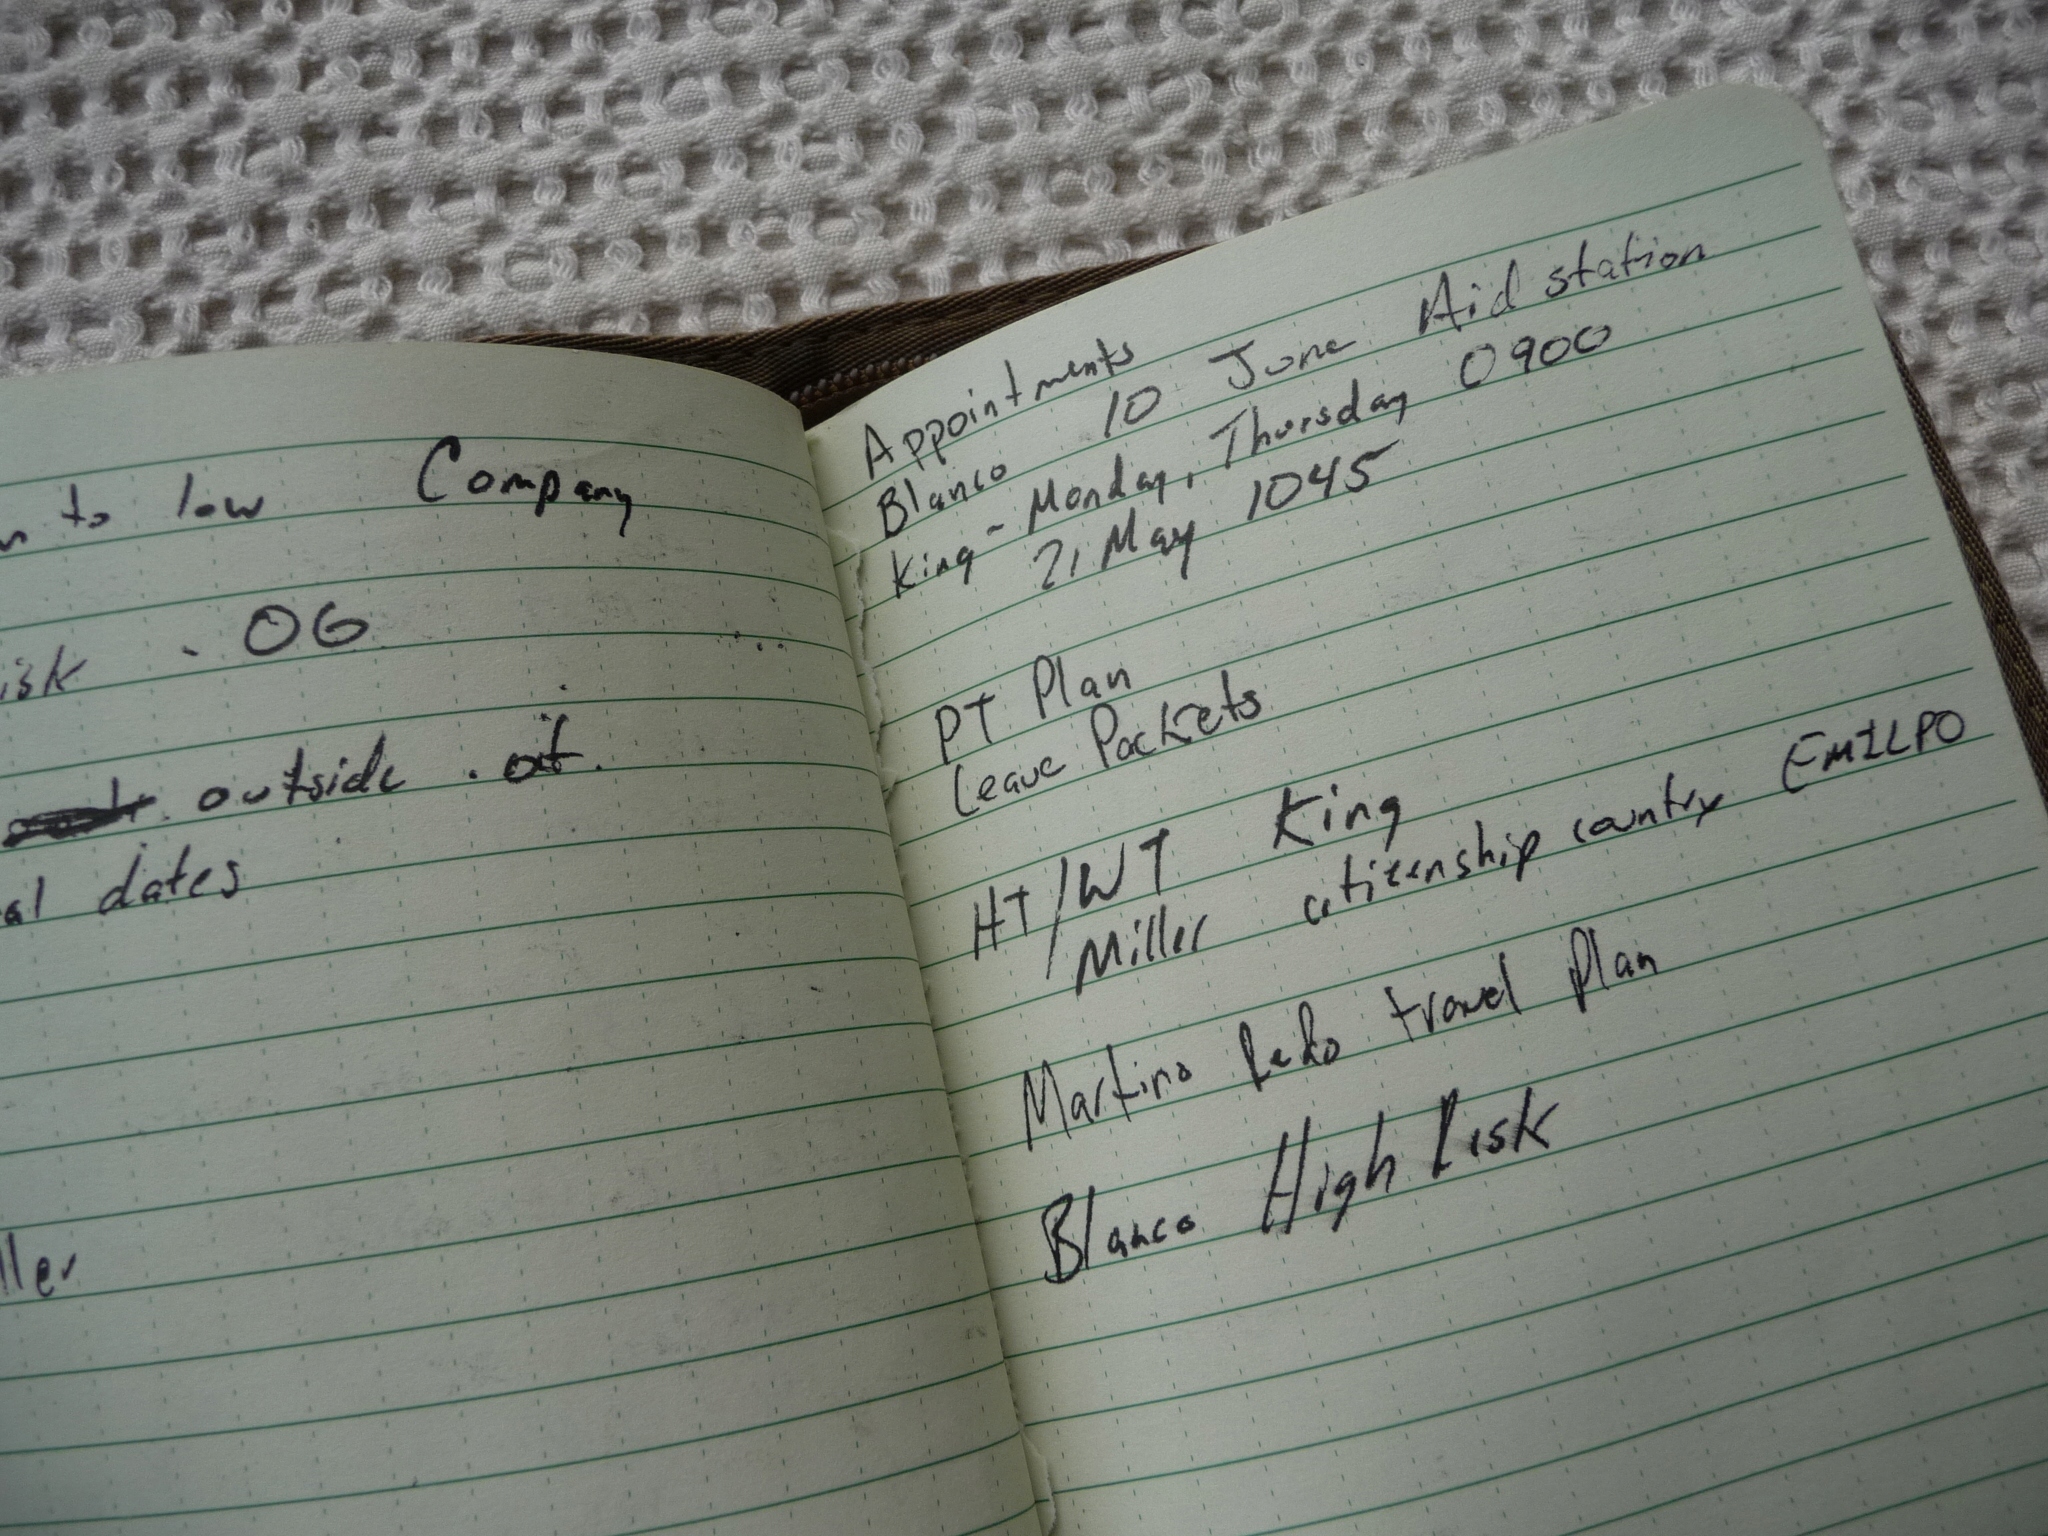 to low Company
isk . OG
outside . of.
al dates
ller
Appointments
Blanco 10 June Aid station
King - Monday, Thursday 0900
21 May 1045
PT Plan
Leave Packets
HT/WT King
Miller citizenship country EMILPO
Martino Redo travel Plan
Blanco High Risk